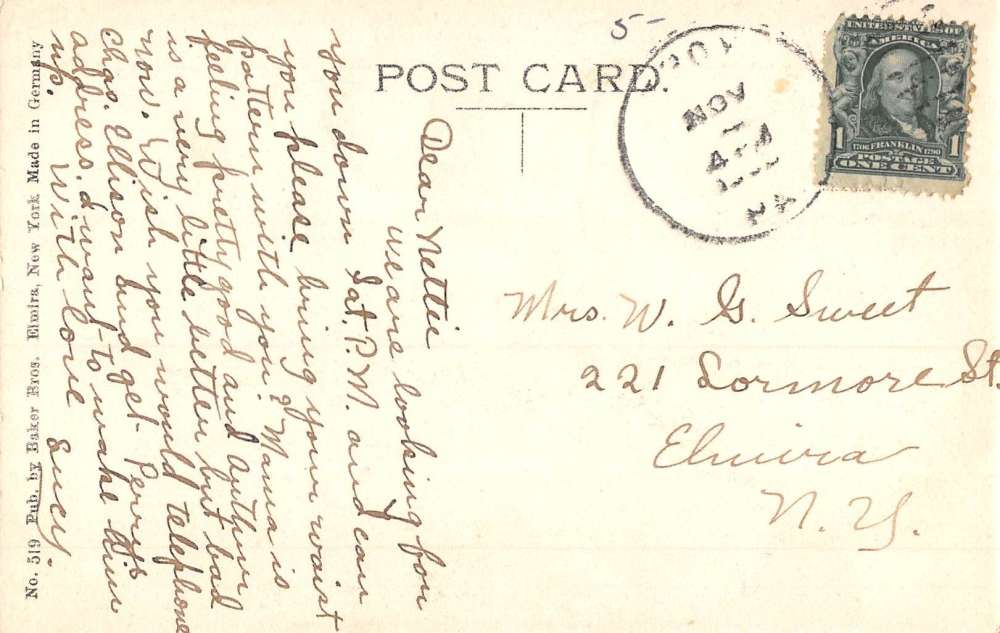 5-
POST CARD.
NOV
4
PA
UNITED STATES OF
AMERICA
1706 FRANKLIN 1790
POSTAGE
1 ONE CENT 1
Dear Nettie
we are looking for
you down Sat. P.M. and can
you please bring your waist
pattern with you? Mama is
feeling pretty good and Arthur
is a very little better but bad
now. Wish you would telephone
Chas. Ellison and get Perry's
adress. I want to wake him
up. With love Lucy.
Mrs. W. G. Sweet
221 Lormore St.
Elmira
N. Y.
No. 519 Pub. by Baker Bros. Elmira, New York Made in Germany